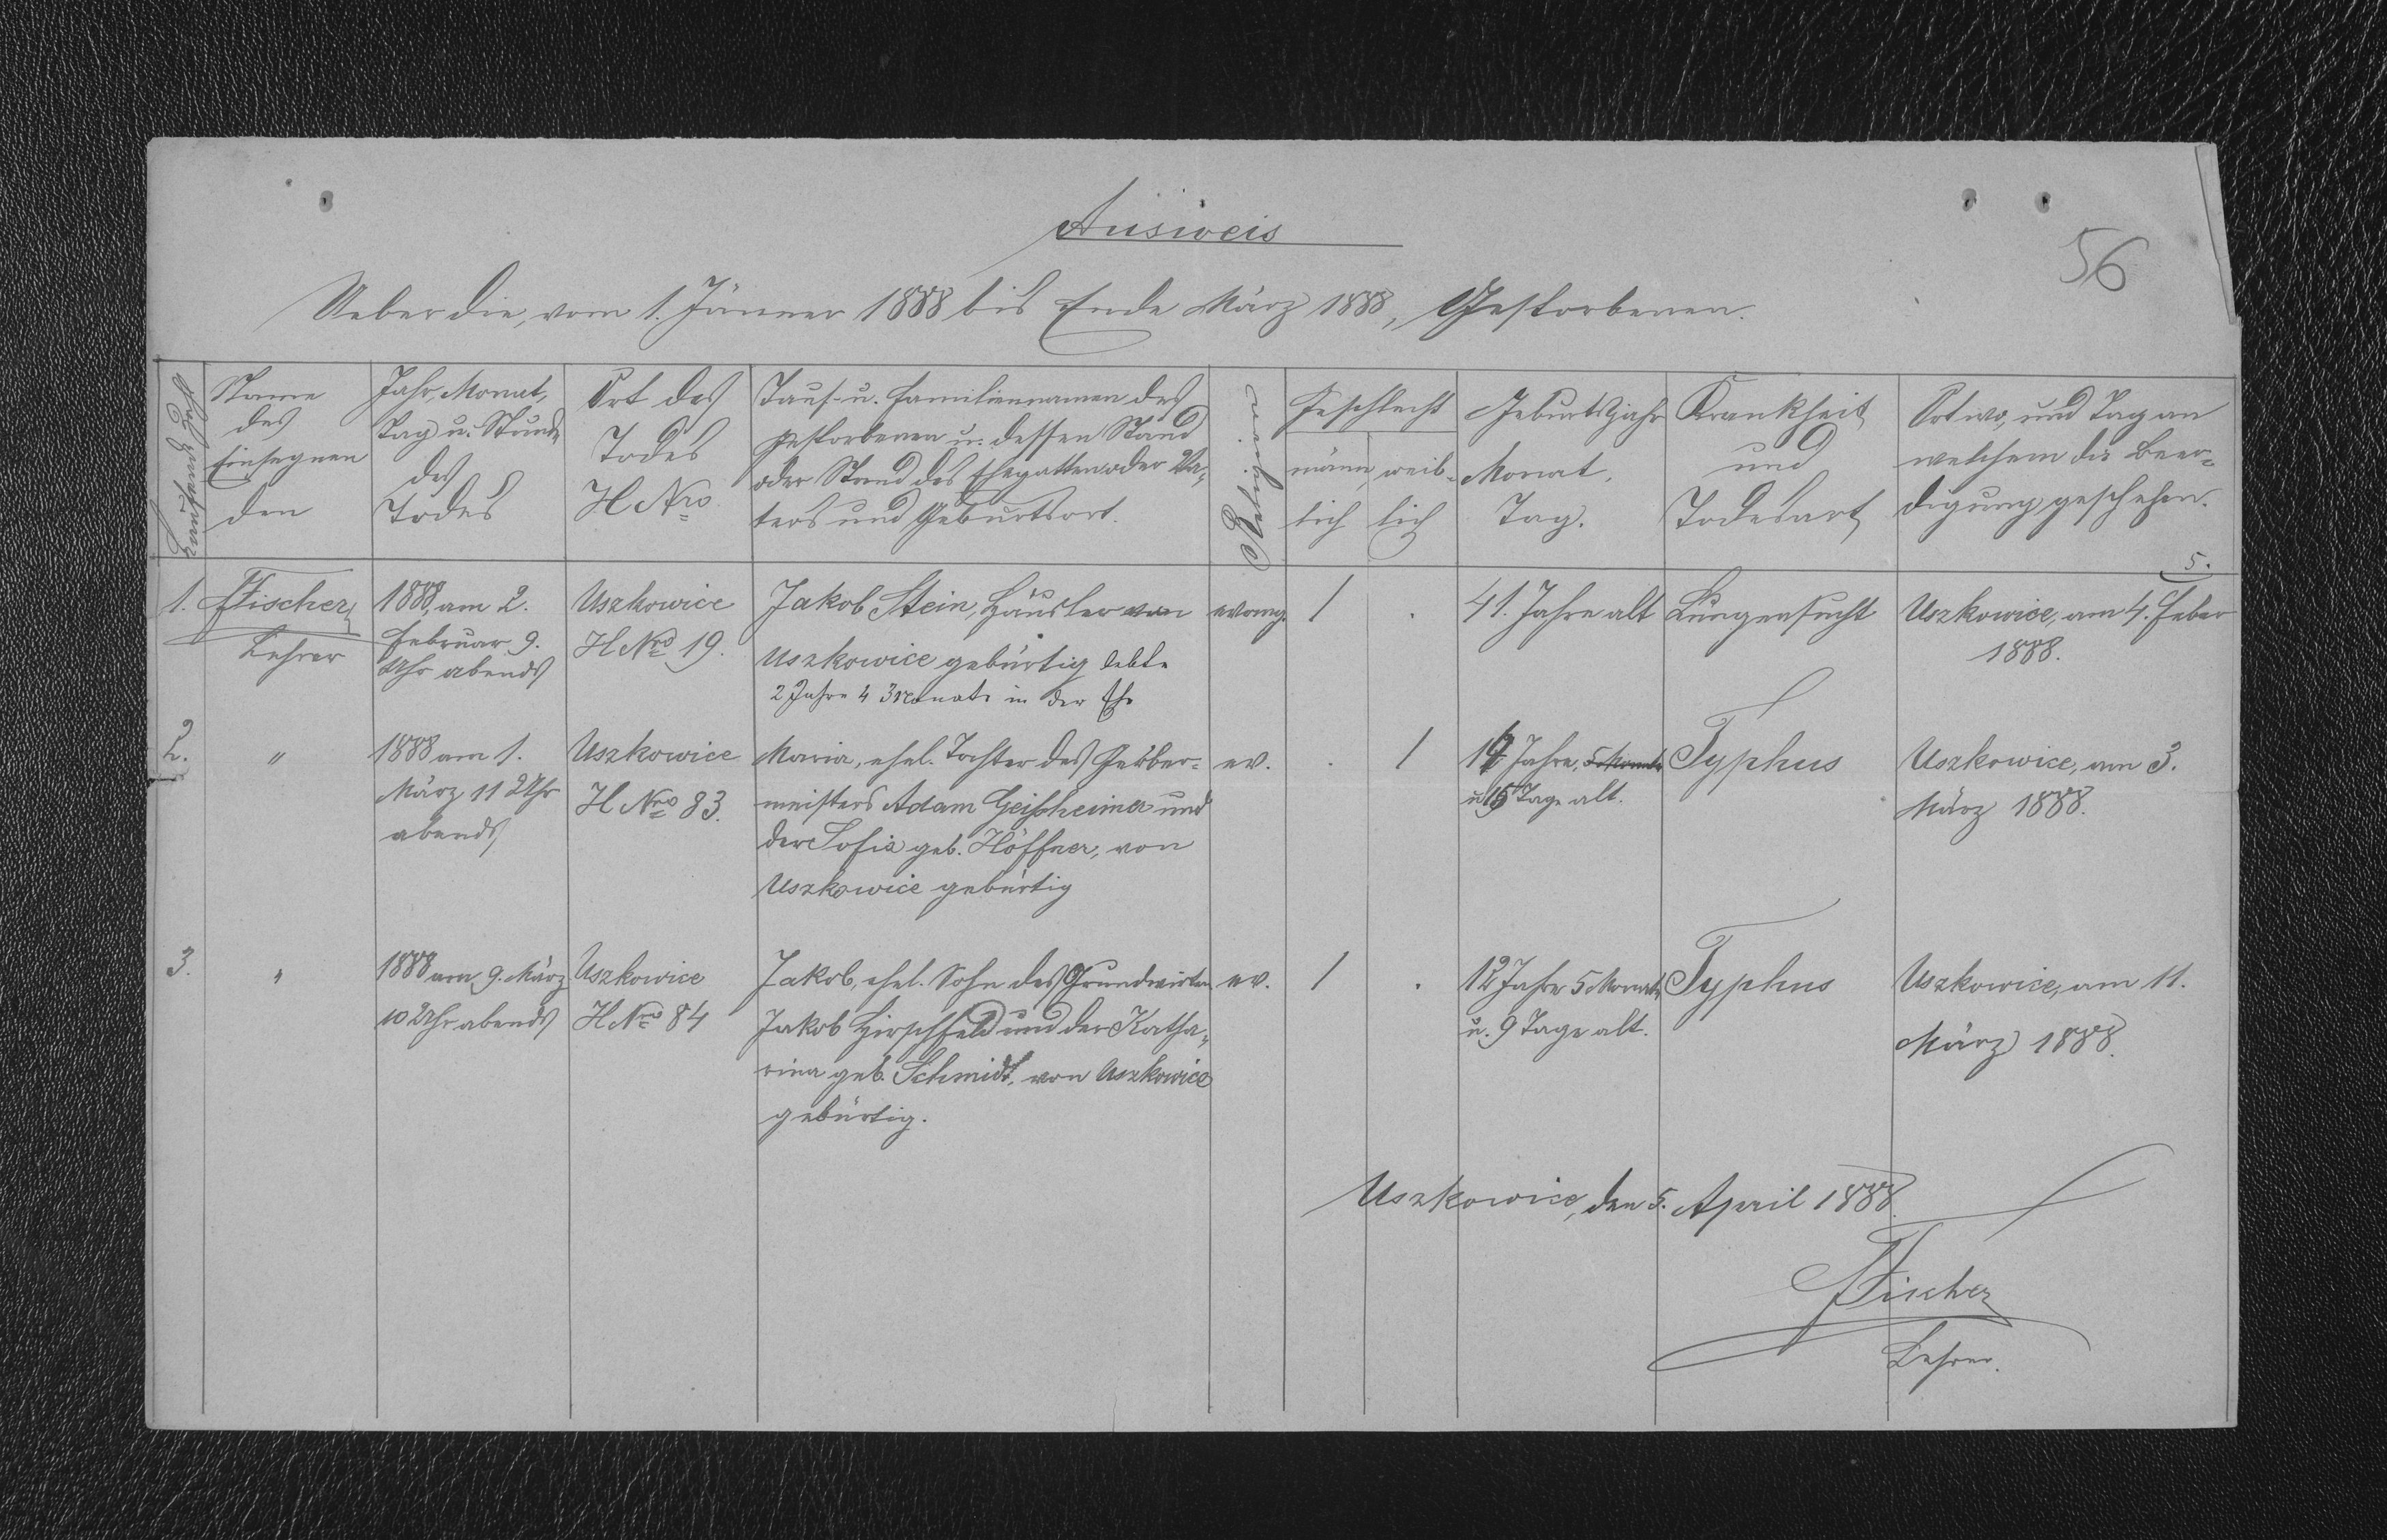 Ausweis
56
Ueber die, vom 1. Jänner 1888 bis Ende März 1888, Gestorbenen.
Laufende Zahl
Name
des
Einsegnen
den
Jahr, Monat,
Tag u. Stunde
des
Todes
Ort des
Todes
H Nro
Tauf- u. Familiennamen des
Gestorbenen u. dessen Stand
oder Stand des Ehegatten oder Va-
ters und Geburtsort.
Religion
Geschlecht
männ
lich
weib-
lich
Geburtsjahr
Monat,
Tag.
Krankheit
und
Todesart
Ort wo, und Tag an
welchem die Beer-
digung geschehen.
1.
Fischer
Lehrer
1888, am 2.
Februar 9.
Uhr abends
Uszkowice
H Nro 19.
Jakob Stein, Häusler von
Uszkowice gebürtig lebte
2 Jahre 4 Monate in der Ehe
evang.
1
.
41. Jahre alt
Lungensucht
5.
Uszkowice, am 4. Feber
1888.
2.
"
1888 am 1.
März 11 Uhr
abends
Uszkowice
H Nro 83.
Maria, ehel. Tochter des Gerber-
meisters Adam Geißheimer und
der Sofia geb. Höffner, von
Uszkowice gebürtig
ev.
.
1
Jahre, Monate
u. 15 Tage alt.
Typhus
Uszkowice, am 3.
März 1888.
3.
"
1888 am 9. März
10 Uhr abends
Uszkowice
H Nro 84
Jakob, ehel. Sohn des Grundwirten
Jakob Hirschfeld und der Katha-
rina geb. Schmidt, von Uszkowice
gebürtig.
ev.
1
.
12 Jahre 5 Monate
u. 9 Tage alt.
Typhus
Uszkowice, am 11.
März 1888.
Uszkowice, den 5. April 1888.
Fischer
Lehrer.